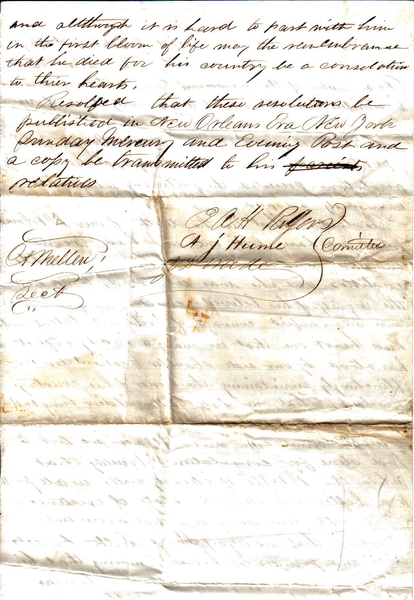 and although it is hard to part with him
in the first bloom of life may the remembrance
that he died for his country be a consolation
to thier hearts.
Resolved that these resolutions be
published in New Orleans Era New York
Sunday Mercury and Evening Post and
a copy be transmitted to his parients
relatives
E A H
A J Hume
Comittee
Mellen
Sect